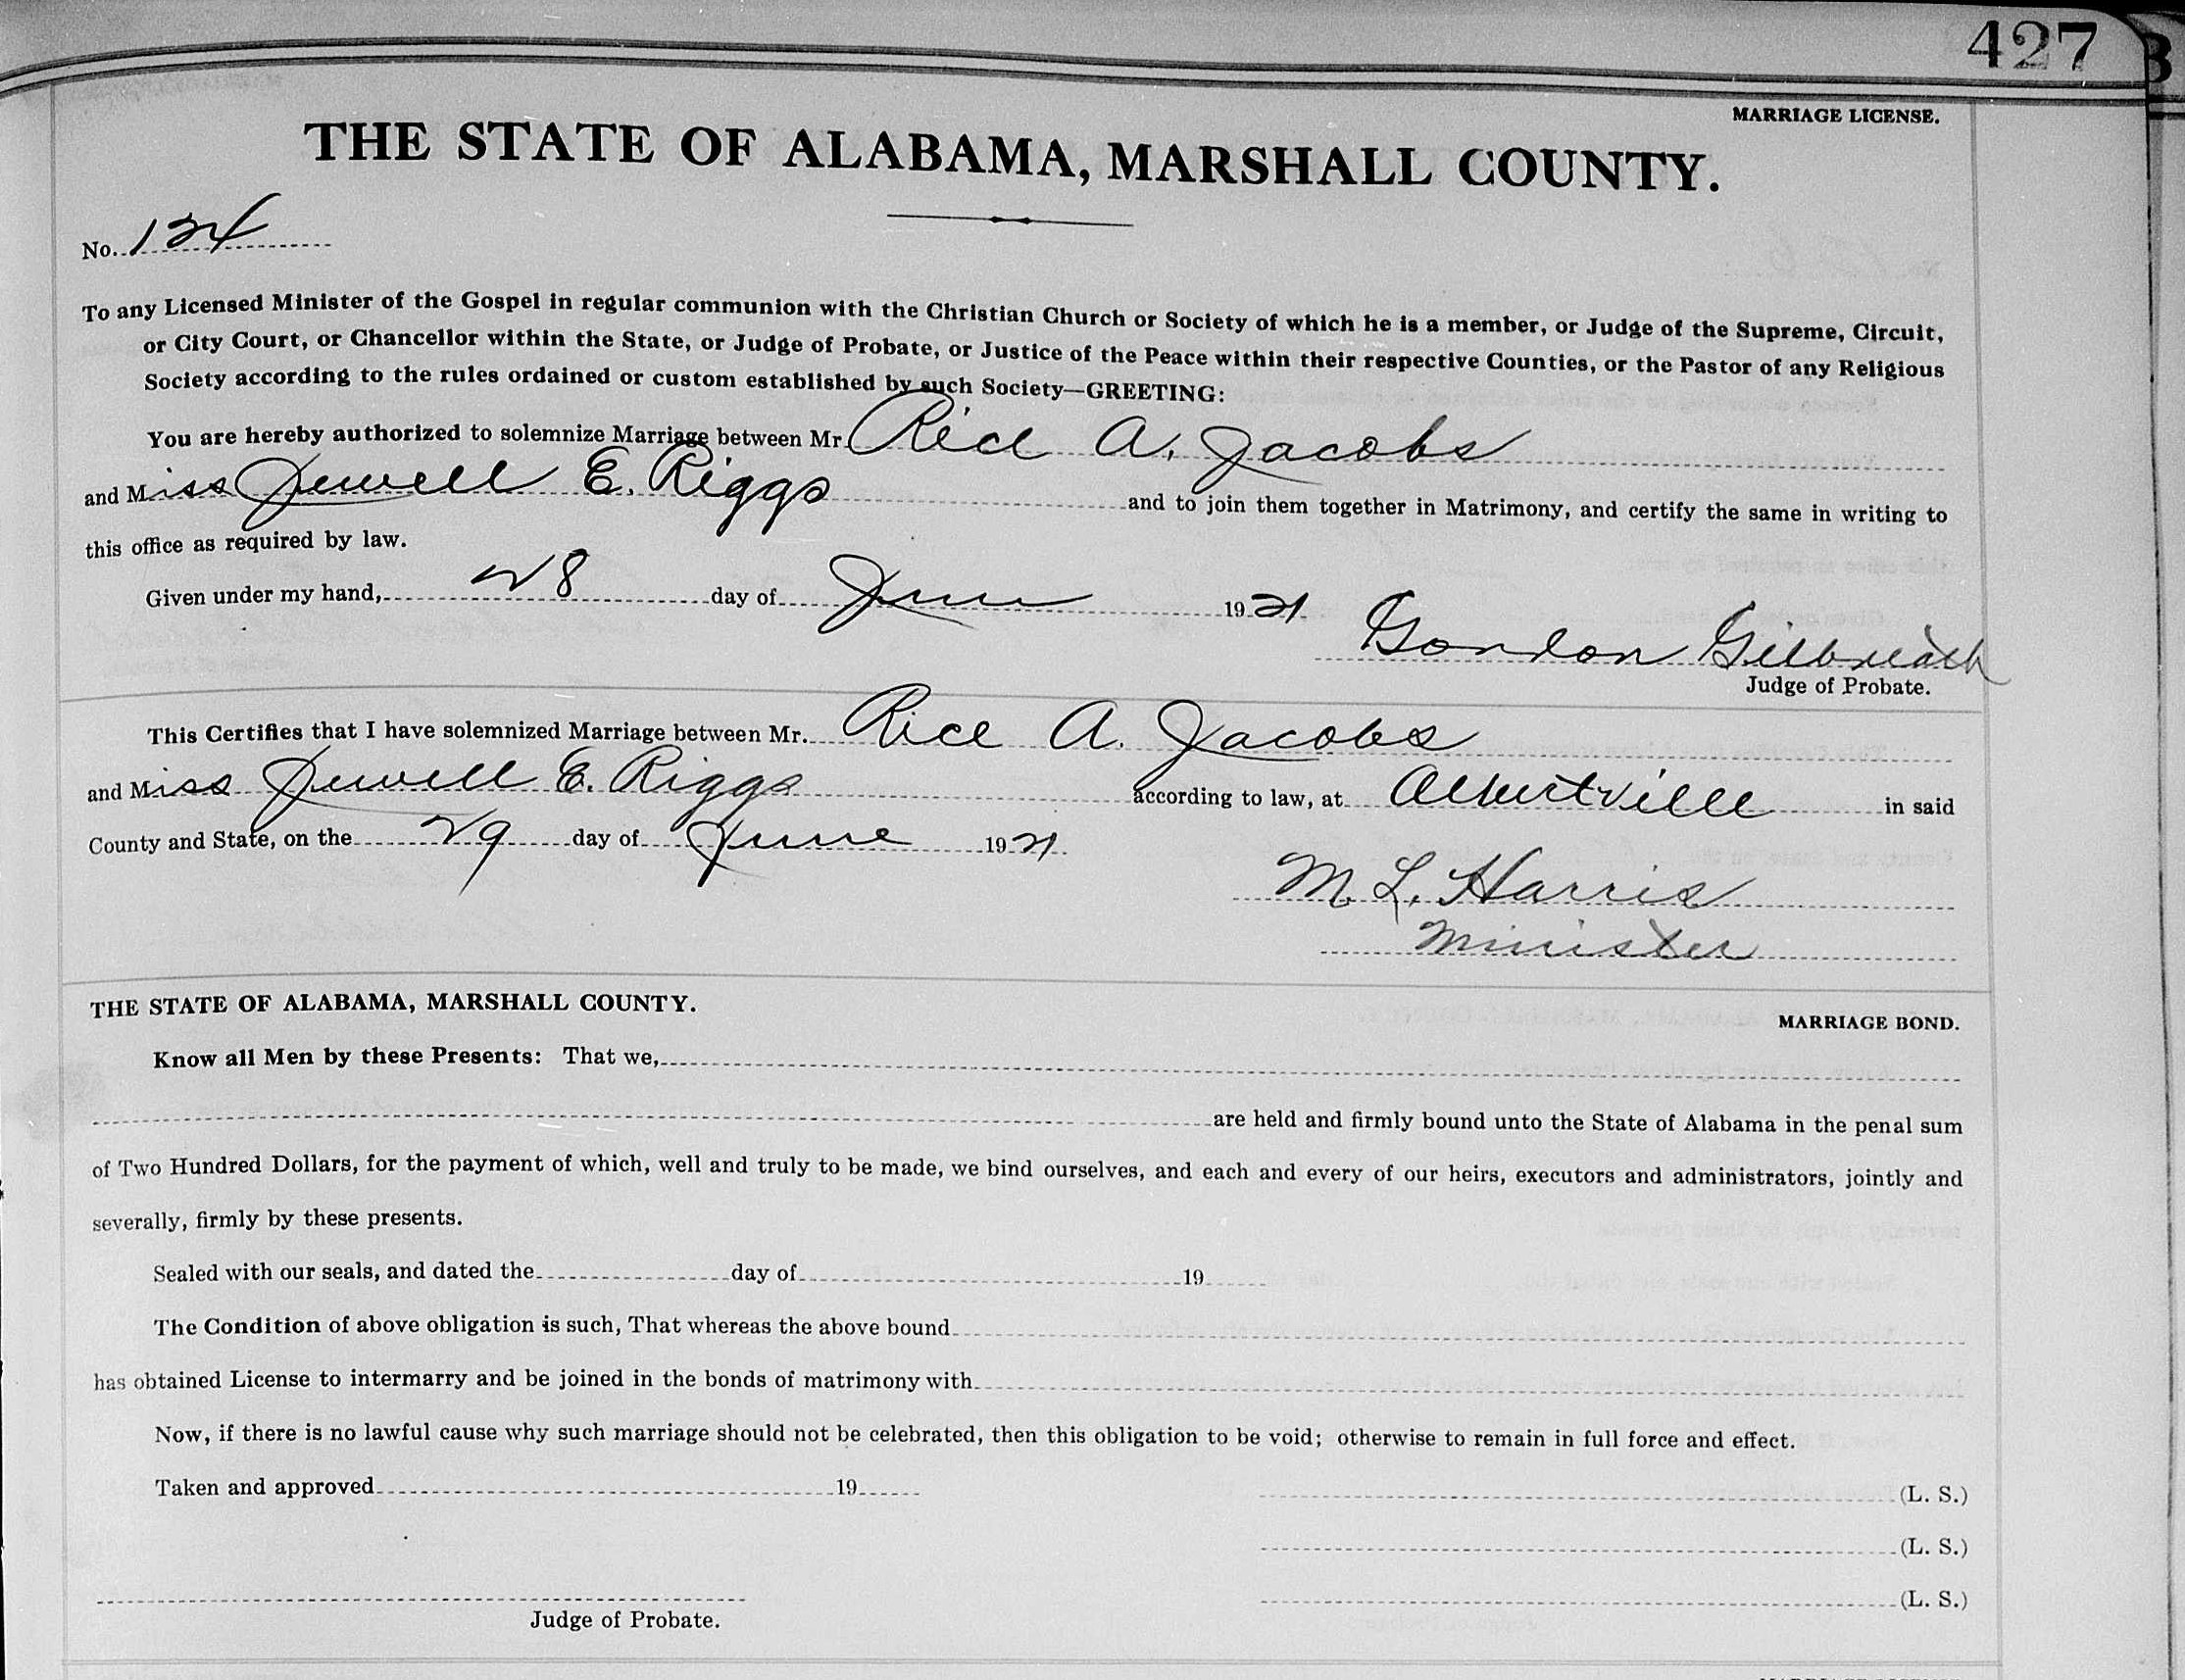 427
MARRIAGE LICENSE.
THE STATE OF ALABAMA, MARSHALL COUNTY.
No. 124
To any Licensed Minister of the Gospel in regular communion with the Christian Church or Society of which he is a member, or Judge of the Supreme, Circuit,
or City Court, or Chancellor within the State, or Judge of Probate, or Justice of the Peace within their respective Counties, or the Pastor of any Religious
Society according to the rules ordained or custom established by such Society—GREETING:
You are hereby authorized to solemnize Marriage between Mr. Rice A. Jacobs
and Miss Jewell E. Riggs and to join them together in Matrimony, and certify the same in writing to
this office as required by law.
Given under my hand, 28 day of June 1921.
Gordon Gilbreath
Judge of Probate.
This Certifies that I have solemnized Marriage between Mr. Rice A. Jacobs
and Miss Jewell E. Riggs according to law, at Albertville in said
County and State, on the 29 day of June 1921.
M. L. Harris
Minister
THE STATE OF ALABAMA, MARSHALL COUNTY.
MARRIAGE BOND.
Know all Men by these Presents: That we,
are held and firmly bound unto the State of Alabama in the penal sum
of Two Hundred Dollars, for the payment of which, well and truly to be made, we bind ourselves, and each and every of our heirs, executors and administrators, jointly and
severally, firmly by these presents.
Sealed with our seals, and dated the day of 19
The Condition of above obligation is such, That whereas the above bound
has obtained License to intermarry and be joined in the bonds of matrimony with
Now, if there is no lawful cause why such marriage should not be celebrated, then this obligation to be void; otherwise to remain in full force and effect.
Taken and approved 19 (L. S.)
(L. S.)
(L. S.)
Judge of Probate.